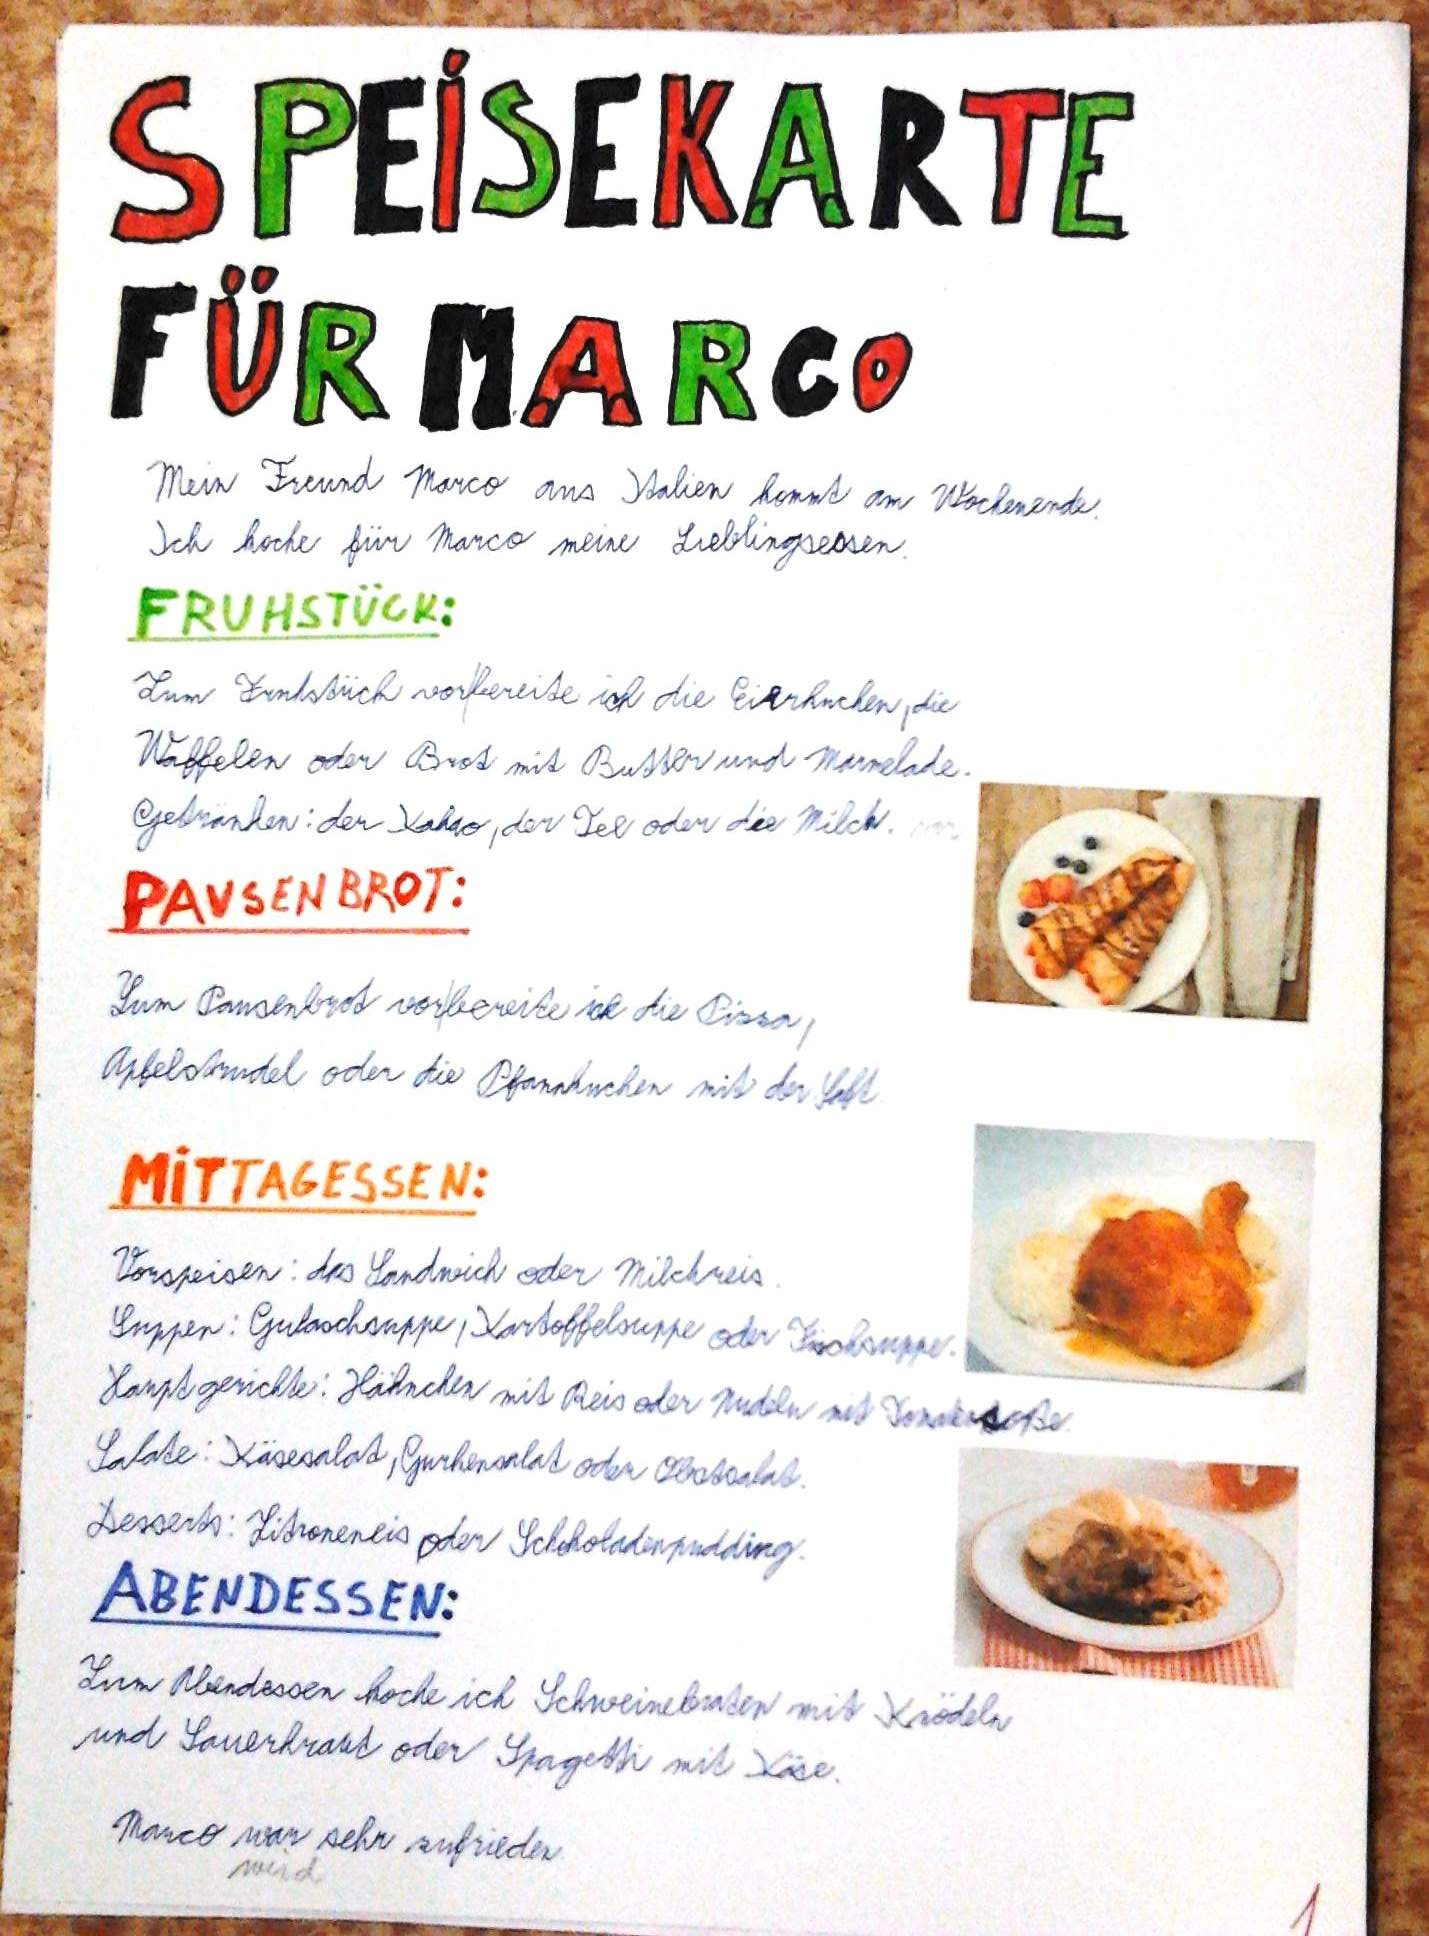 SPEISEKARTE
FÜR MARCO
Mein Freund Marco aus Italien kommt am Wochenende.
Ich koche für Marco meine Lieblingsessen.
FRUHSTÜCK:
Zum Fruhstück vor/bereite ich die Eierkuchen, die
Waffelen oder Brot mit Butter und Marmelade.
Getränken: der Kakao, der Tee oder die Milch.
PAUSENBROT:
Zum Pausenbrot vor/bereite ich die Pizza,
Apfelstrudel oder die Pfannkuchen mit der Saft.
MITTAGESSEN:
Vorspeisen: das Sandwich oder Milchreis.
Suppen: Gulaschsuppe, Kartoffelsuppe oder Fischsuppe.
Hauptgerichte: Hähnchen mit Reis oder Nudeln mit Tomatensoße.
Salate: Käsesalat, Gurkensalat oder Obstsalat.
Desserts: Zitroneneis oder Schokoladenpudding.
ABENDESSEN:
Zum Abendessen koche ich Schweinebraten mit Knödeln
und Sauerkraut oder Spagetti mit Käse.
Marco war sehr zufrieden.
wird
1